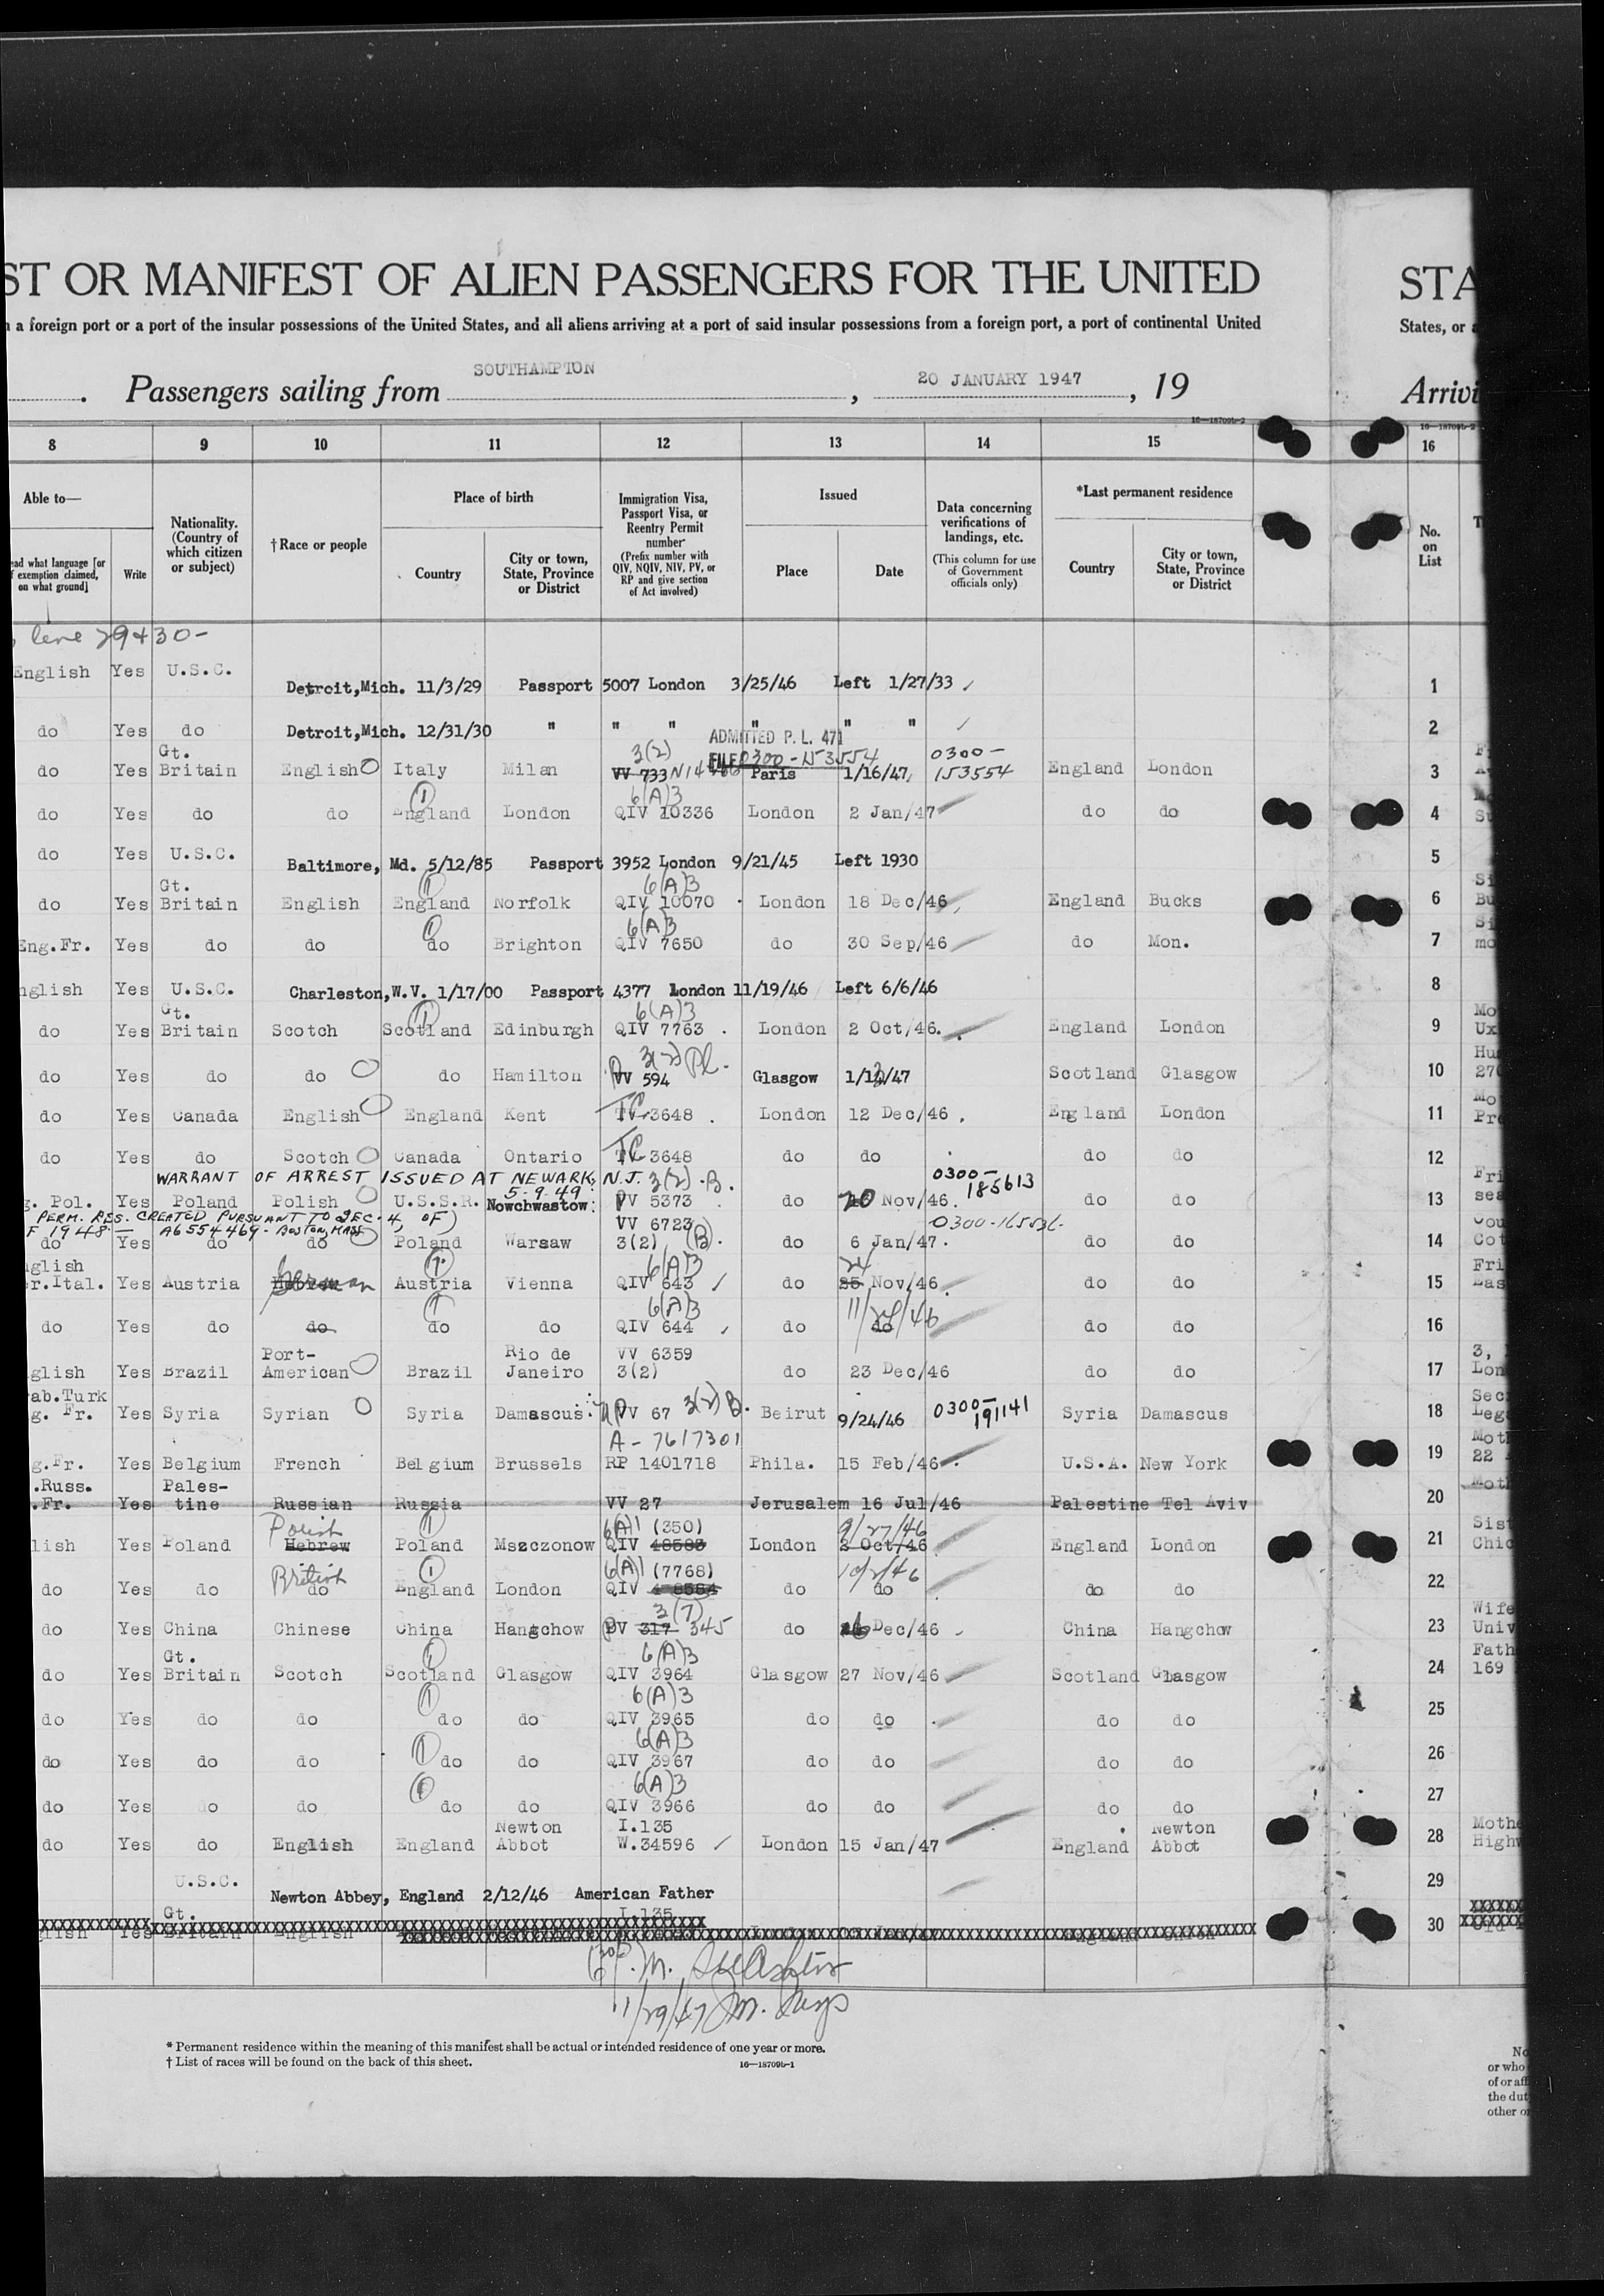 ST OR MANIFEST OF ALIEN PASSENGERS FOR THE UNITED STA
a foreign port or a port of the insular possessions of the United States, and all aliens arriving at a port of said insular possessions from a foreign port, a port of continental United States, or
. Passengers sailing from SOUTHAMPTON, 20 JANUARY 1947, 19 Arrivi
16—18709b-2 16—18709b-2
8 9 10 11 12 13 14 15 16
Able to— Nationality. (Country of which citizen or subject) †Race or people Place of birth Immigration Visa, Passport Visa, or Reentry Permit number (Prefix number with QIV, NQIV, NIV, PV, or RP and give section of Act involved) Issued Data concerning verifications of landings, etc. (This column for use of Government officials only) *Last permanent residence No. on List
ead what language [or exemption claimed, on what ground] Write Country City or town, State, Province or District Place Date Country City or town, State, Province or District
line 29+30-
English Yes U.S.C. Detroit,Mich. 11/3/29 Passport 5007 London 3/25/46 Left 1/27/33 1
do Yes do Detroit,Mich. 12/31/30 " " " " " " 2
ADMITTED P. L. 471
FILE 0300-153554
do Yes Gt. Britain English Italy Milan 3(2) VV 733 Paris 1/16/47 0300-153554 England London 3
do Yes do do England London 6(A)3 QIV 10336 London 2 Jan/47 do do 4
do Yes U.S.C. Baltimore, Md. 5/12/85 Passport 3952 London 9/21/45 Left 1930 5
do Yes Gt. Britain English England Norfolk 6(A)3 QIV 10070 London 18 Dec/46 England Bucks 6
Eng.Fr. Yes do do do Brighton 6(A)3 QIV 7650 do 30 Sep/46 do Mon. 7
nglish Yes U.S.C. Charleston,W.V. 1/17/00 Passport 4377 London 11/19/46 Left 6/6/46 8
do Yes Gt. Britain Scotch Scotland Edinburgh 6(A)3 QIV 7763 London 2 Oct/46. England London 9
do Yes do do do Hamilton 3(2) VV 594 Glasgow 1/13/47 Scotland Glasgow 10
do Yes Canada English England Kent TC 3648 London 12 Dec/46 England London 11
do Yes do Scotch Canada Ontario TC 3648 do do do do 12
WARRANT OF ARREST ISSUED AT NEWARK, N.J. 5-9-49
g. Pol. Yes Poland Polish U.S.S.R. Nowchwastow 3(2).B. PV 5373 do 20 Nov/46. 0300-185613 do do 13
PERM. RES. CREATED PURSUANT TO SEC. 4, OF
F 1948 — A6554469 - BOSTON, MASS
do Yes do do Poland Warsaw VV 6723 3(2) (B). do 6 Jan/47. 0300-165536 do do 14
nglish er.Ital. Yes Austria German Austria Vienna 6(A)3 QIV 643 do 24 25 Nov/46 do do 15
do Yes do do do do 6(A)3 QIV 644 do 11/24/46 do do do 16
glish Yes Brazil Port-American Brazil Rio de Janeiro VV 6359 3(2) do 23 Dec/46 do do 17
ab.Turk g. Fr. Yes Syria Syrian Syria Damascus PV 67 3(2) B. Beirut 9/24/46 0300-191141 Syria Damascus 18
g.Fr. Yes Belgium French Belgium Brussels A-7617301 RP 1401718 Phila. 15 Feb/46 U.S.A. New York 19
.Russ. .Fr. Yes Pales-tine Russian Russia VV 27 Jerusalem 16 Jul/46 Palestine Tel Aviv 20
lish Yes Poland Polish Hebrew Poland Mszczonow 6(A)1 (350) QIV 48583 London 9/27/46 2 Oct/46 England London 21
do Yes do British do England London 6(A)1 (7768) QIV do 10/2/46 do do do 22
do Yes China Chinese China Hangchow 3(7) PV 317 345 do 26 Dec/46 China Hangchow 23
do Yes Gt. Britain Scotch Scotland Glasgow 6(A)3 QIV 3964 Glasgow 27 Nov/46 Scotland Glasgow 24
do Yes do do do do 6(A)3 QIV 3965 do do do do 25
do Yes do do do do 6(A)3 QIV 3967 do do do do 26
do Yes do do do do 6(A)3 QIV 3966 do do do do 27
do Yes do English England Newton Abbot I.135 W.34596 London 15 Jan/47 England Newton Abbot 28
U.S.C. Newton Abbey, England 2/12/46 American Father 29
glish Yes Gt. Britain English I.135 30
1/29/47
* Permanent residence within the meaning of this manifest shall be actual or intended residence of one year or more.
† List of races will be found on the back of this sheet. 16—18709b-1
No
or who
of or aff
the dut
other or